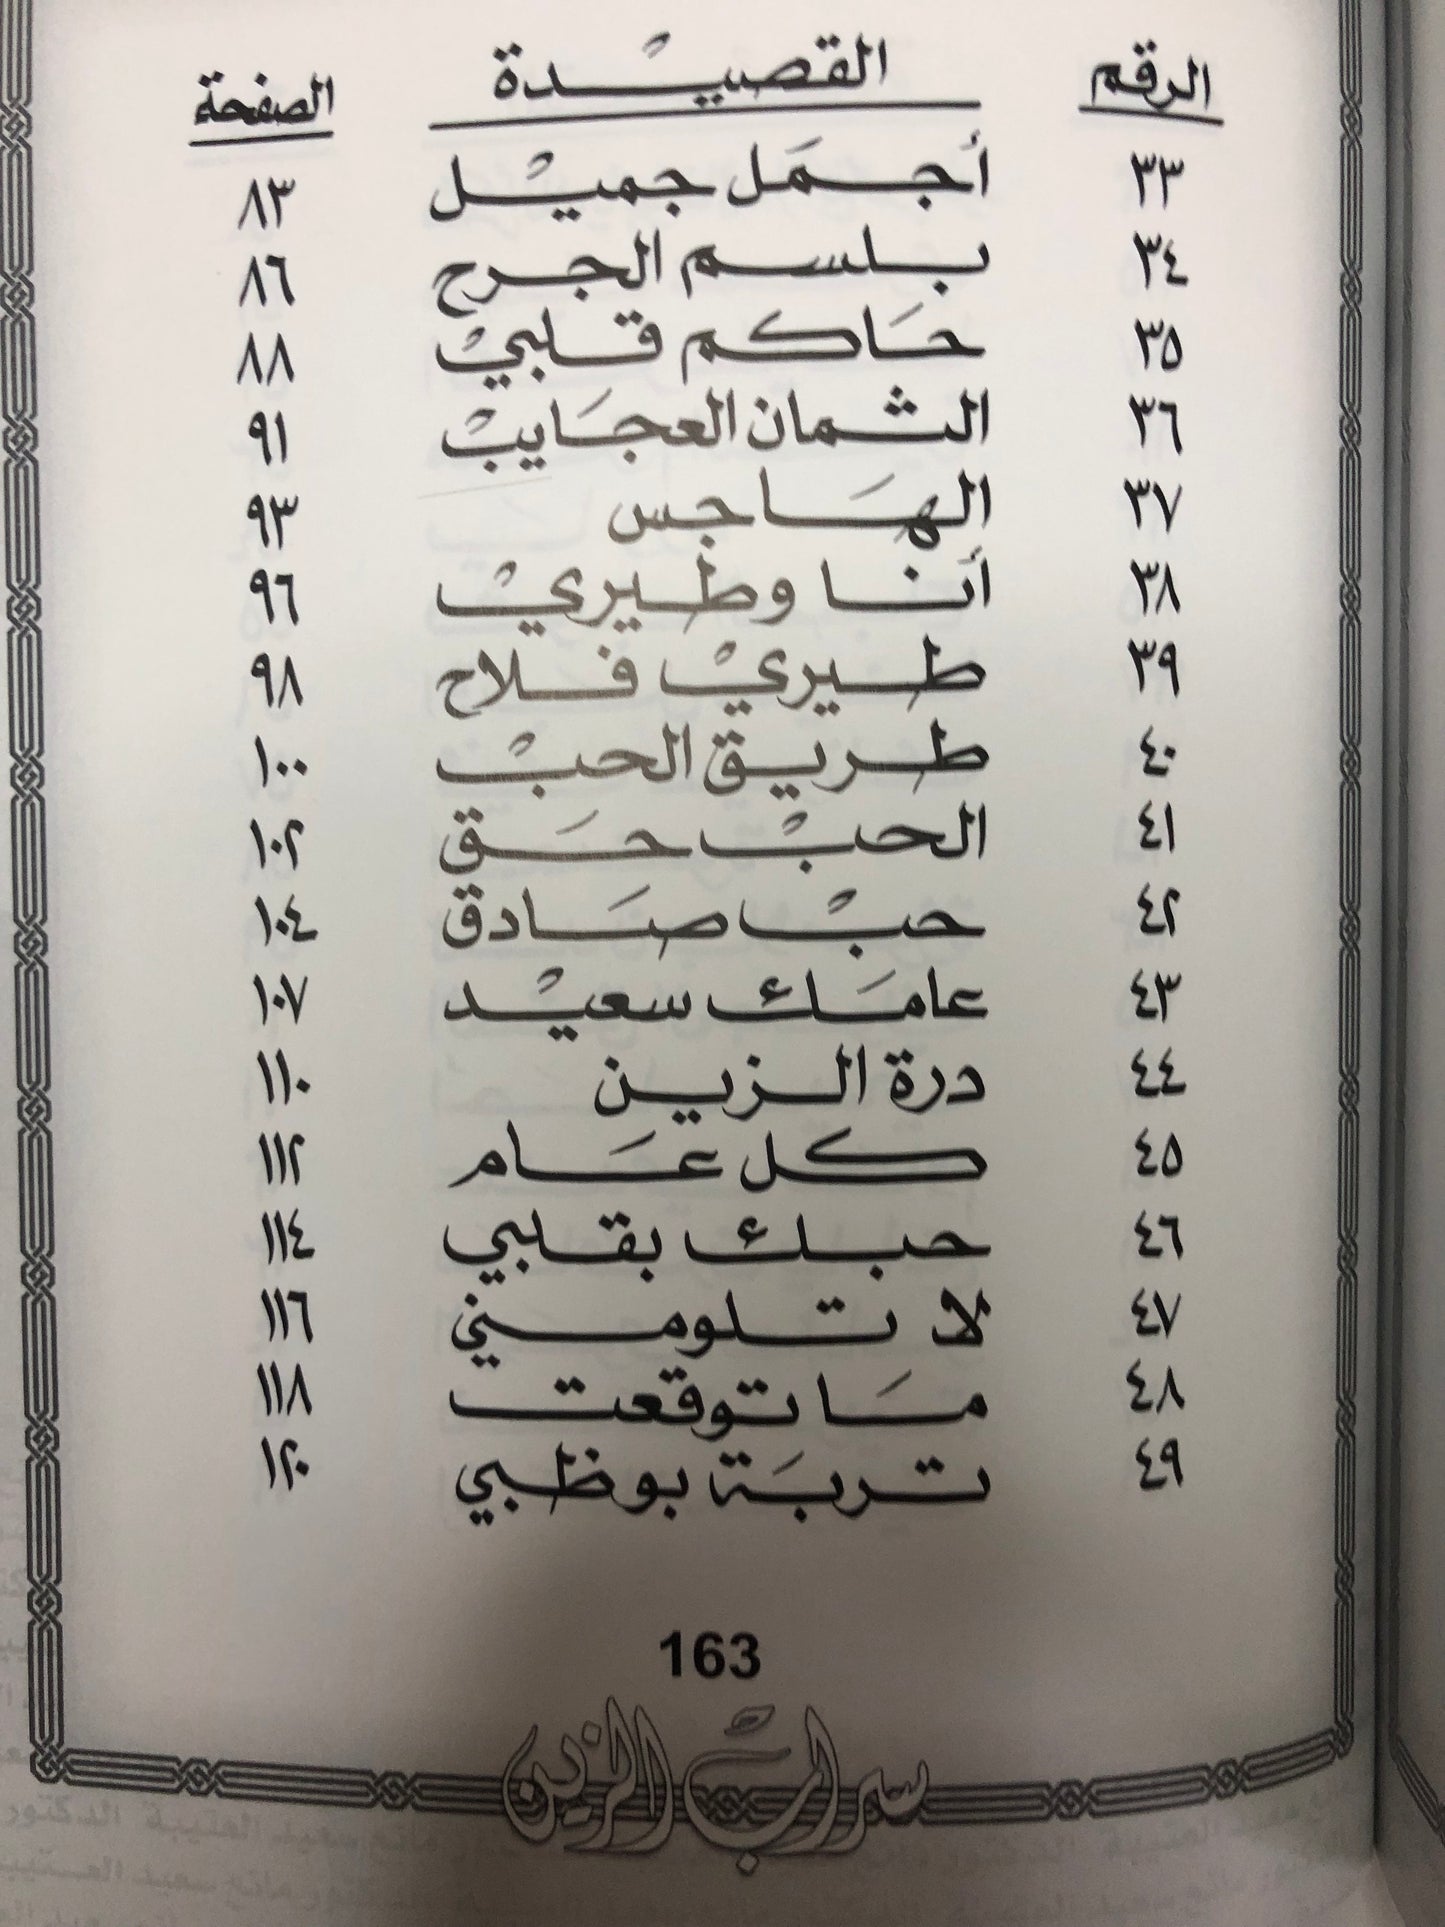 الرقم القصيدة الصفحة
٣٣ أجمَل جميْل ٨٣
٣٤ بلسم الجرح ٨٦
٣٥ حَاكم قلبيْ ٨٨
٣٦ الثمان العجَايبْ ٩١
٣٧ الهَاجس ٩٣
٣٨ أنَا وطيريْ ٩٦
٣٩ طيريْ فلاح ٩٨
٤٠ طريق الحبْ ١٠٠
٤١ الحبْ حَق ١٠٢
٤٢ حبْ صَادق ١٠٤
٤٣ عامَك سعيْد ١٠٧
٤٤ درة الزين ١١٠
٤٥ كل عَام ١١٢
٤٦ حبك بقلبي ١١٤
٤٧ لا تلومني ١١٦
٤٨ مَا توقعت ١١٨
٤٩ تربَة بوظبي ١٢٠
163
سرابْ الزين